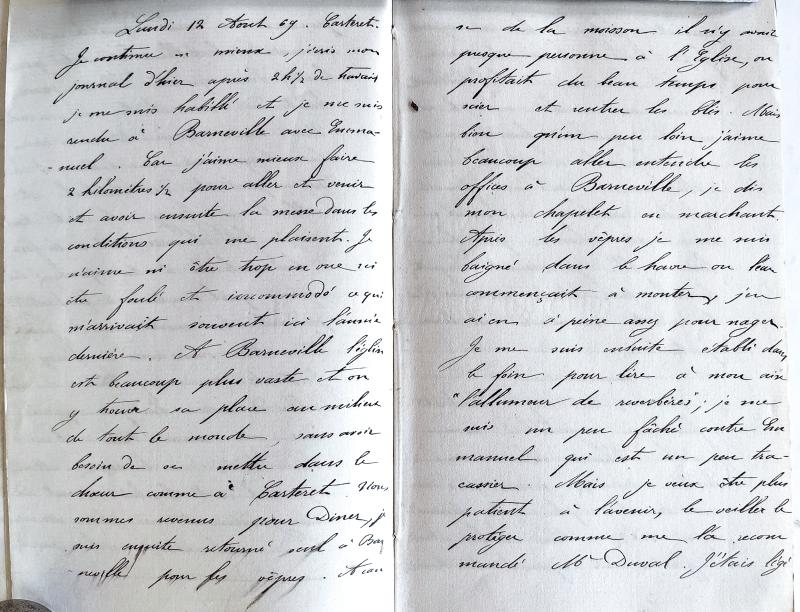 Lundi 12 Aout 69. Carteret.
Je continue mieux, j'écris mon
journal d'hier après 2h½ de travail
je me suis habillé et je me suis
rendu à Barneville avec Emma-
-nuel. Car j'aime mieux faire
2 kilomètres ½ pour aller et venir
et avoir ensuite la messe dans les
conditions qui me plaisent. Je
n'aime ni être trop en vue ni
être foulé et incommodé ce qui
m'arrivait souvent ici l'année
dernière. A Barneville l'église
est beaucoup plus vaste et on
y trouve sa place au milieu
de tout le monde, sans avoir
besoin de se mettre dans le
chœur comme à Carteret. Nous
sommes revenus pour Diner, je
suis ensuite retourné seul à Bar
neville pour les vêpres. A cau
se de la moisson il n'y avait
presque personne à l'Eglise, on
profitait du beau temps pour
scier et rentrer les blés. Mais
bien qu'un peu loin j'aime
beaucoup aller entendre les
offices à Barneville, je dis
mon chapelet en marchant.
Après les vêpres je me suis
baigné dans le havre ou l'eau
commençait à monter, j'en
ai eu à peine assez pour nager.
Je me suis ensuite établi dans
le foin pour lire à mon aise
"l'allumeur de reverbères"; je me
suis un peu fâché contre Em
manuel qui est un peu tra-
cassier. Mais je veux être plus
patient à l'avenir, le veiller le
protéger comme me l'a recom
mandé Mr Duval. J'étais légè